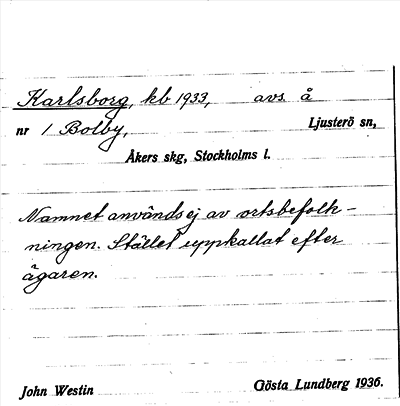 Karlsborg, kb 1933, avs. å
nr 1 Bolby, Ljusterö sn,
Åkers skg, Stockholms l.
Namnet användes ej av ortsbefolk-
ningen. Stället uppkallat efter
ägaren.
John Westin Gösta Lundberg 1936.